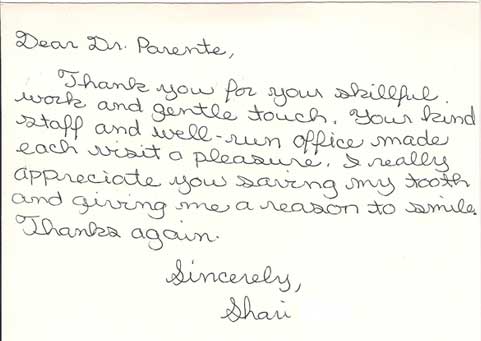 Dear Dr. Parente,
Thank you for your skillful
work and gentle touch. Your kind
staff and well-run office made
each visit a pleasure. I really
appreciate you saving my tooth
and giving me a reason to smile.
Thanks again.
Sincerely,
Shari